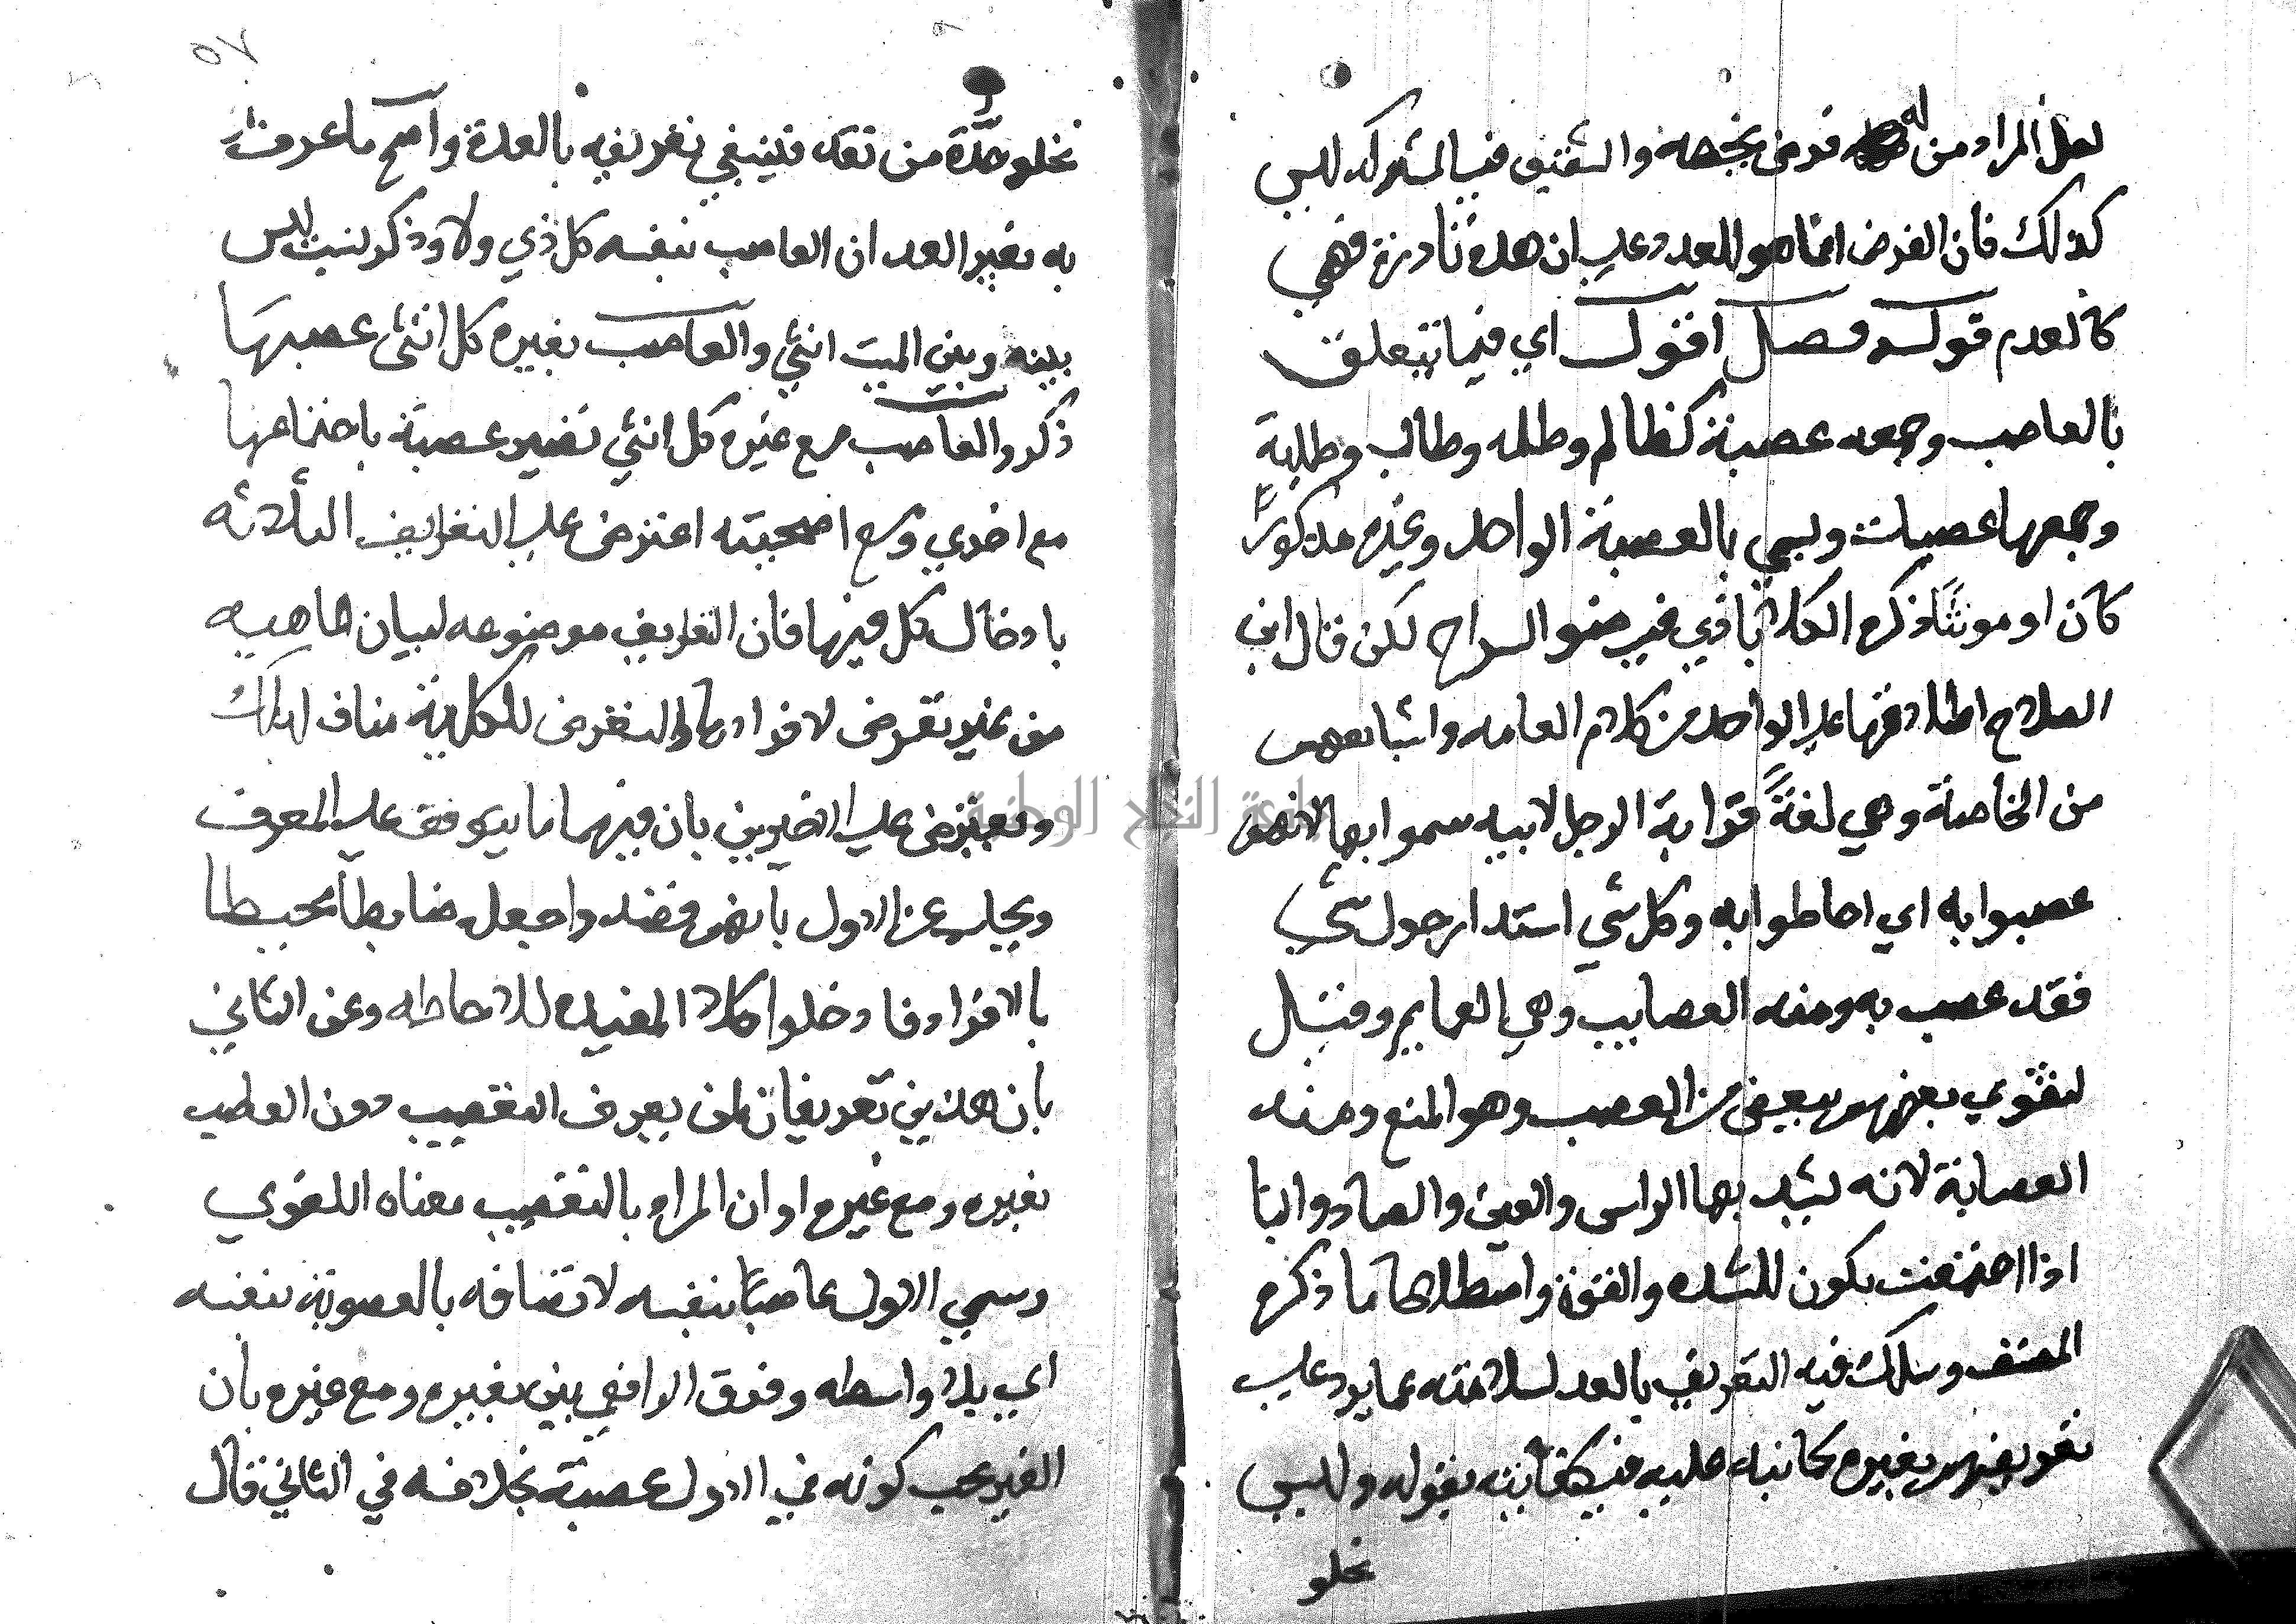 لعل المراد من له فرض بخصه والشقيق في المشركه ليس
كذلك فان الفرض انما هو للعدد علي ان هذه نادرة فهي
كالعدم قوله فصل اقول اي فيما يتعلق
بالعاصب وجمعه عصبة كظالم وظلمه وطالب وطلبة
وجمعها عصبات ويسمي بالعصبة الواحد وغيره مذكورًا
كان او مونثا ذكره الكلابادي في ضو السراج لكن قال ابن
الصلاح اطلاقها علي الواحد من كلام العامه واشباههم
من الخاصة وهي لغةً قرابة الرجل لابيه سموا بها لانهم
عصبوا به اي احاطوا به وكل شي استدار حول شي
فقد عصب به ومنه العصايب وهي العمايم وقيل
لتقوي بعضهم ببعض من العصب وهو المنع ومنه
العصابة لانه يشد بها الراس والعين والصاد والبا
اذا اجتمعت يكون للشده والقوة واصطلاحا ما ذكره
المصنف وسلك فيه التعريف بالعد لسلامته عما يرد علي
تعريفهم بغيره كما نبه عليه في كفايته بقوله وليس
يخلو
٥٧
يخلو حده من نقد فينبغي تعريفه بالعدة واصح ما عرفت
به بغير العد ان العاصب بنفسه كل ذي ولا وذكر نسيب ليس
بينه وبين الميت انثي والعاصب بغيره كل انثي عصبها
ذكر والعاصب مع غيره كل انثي تصير عصبة باجتماعها
مع اخري ومع اصحيته اعترض علي التعاريف الثلاثه
بادخال كل فيها فان التعريف موضوعه لبيان الماهيه
من غير تعرض لافرادها والتعرض للكلية مناف لذلك
ويعترض علي الاخيرين بان فيهما ما يتوقف علي المعرف
ويجاب عن الاول بانهم قصدوا جعله ضابطاً محيطا
بالافراد فادخلوا كلا المفيده للاحاطه وعن الثاني
بان هذين تعريفان لمن يعرف التعصيب دون العاصب
بغيره ومع غيره او ان المراد بالتعصيب معناه اللغوي
وسمي الاول عاصبًا بنفسه لاتصافه بالعصوبة بنفسه
اي بلا واسطه وفرق الرافعي بين بغيره ومع غيره بان
الغير يجب كونه في الاول عصبة بخلافه في الثاني قال
جامعة النجاح الوطنية